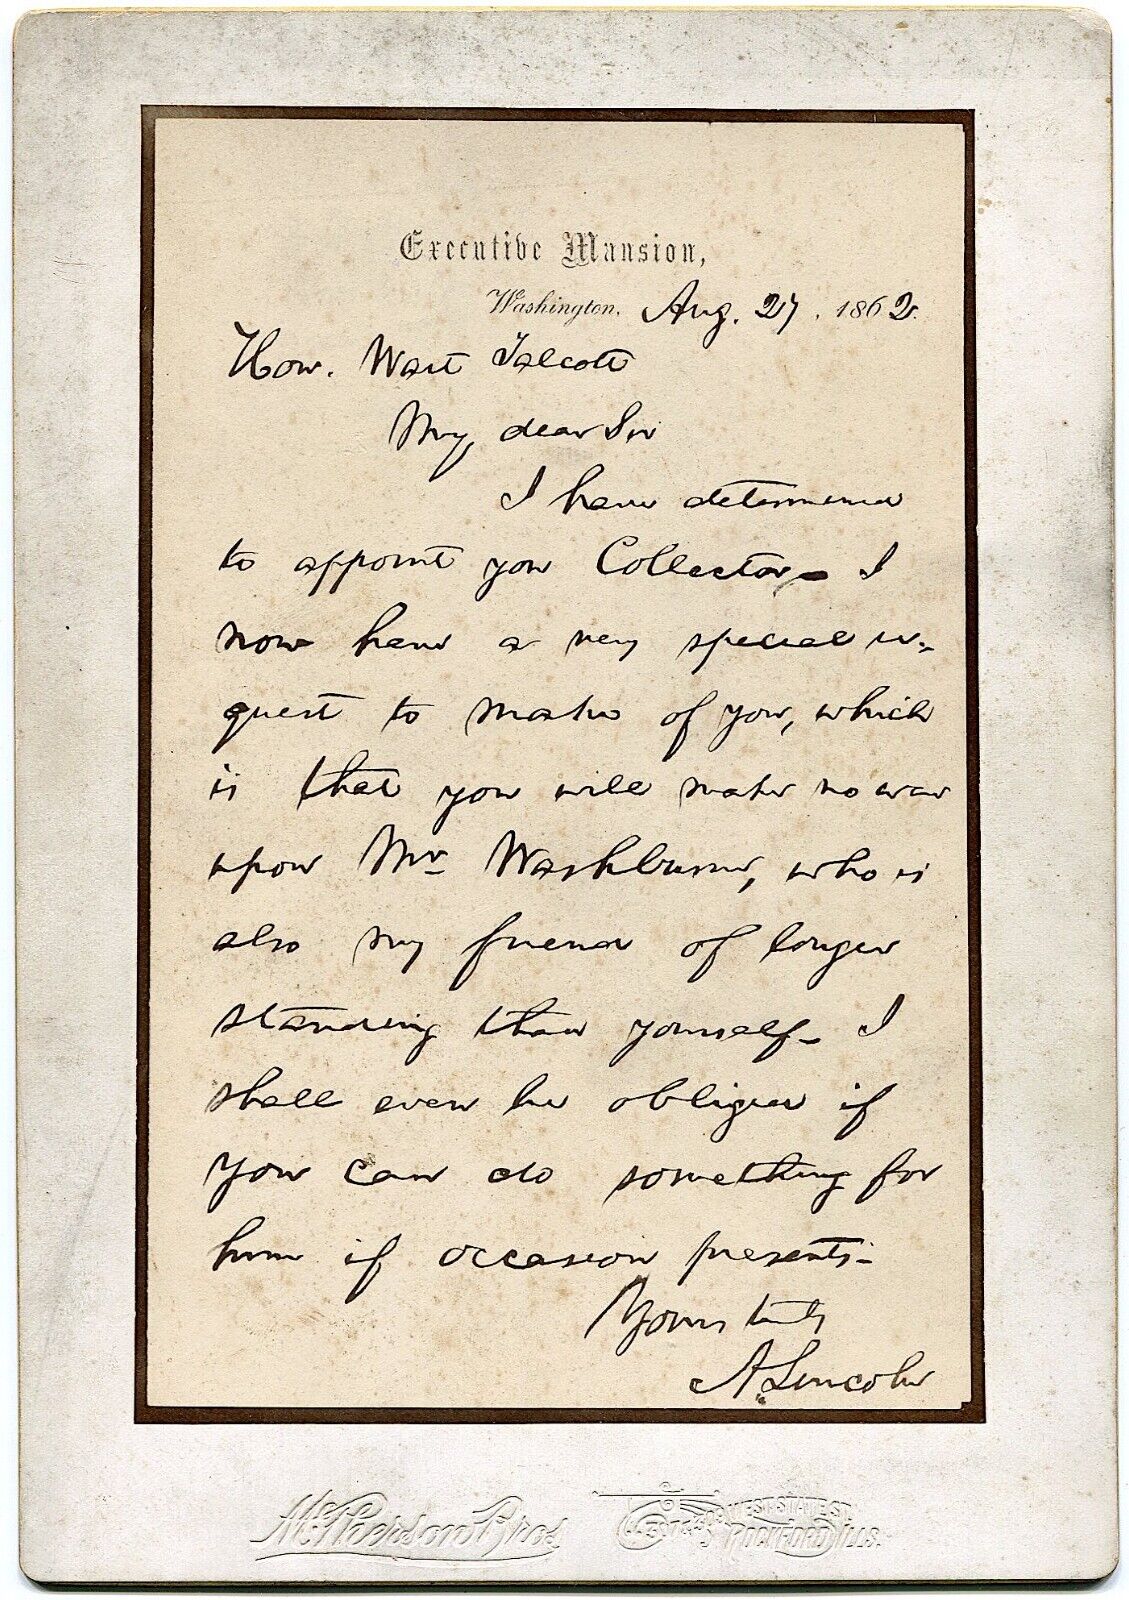 Executive Mansion,
Washington, Aug. 27, 1862.
Hon. Wait Talcott
My dear Sir
I have determined
to appoint you Collector— I
now have a very special re-
quest to make of you, which
is that you will make no war
upon Mr Washburne, who is
also my friend of longer
standing than yourself— I
shall even be obliged if
you can do something for
him if occasion presents—
Yours truly
A. Lincoln
McPherson Bros
West State St.
Rockford Ills.